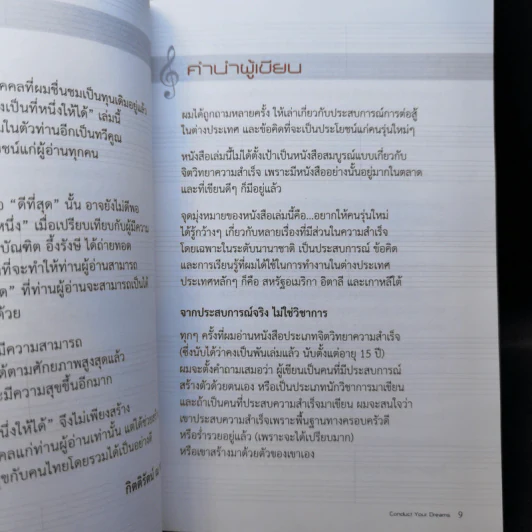 คคลที่ผมชื่นชมเป็นทุนเดิมอยู่แล้ว
งเป็นที่หนึ่งให้ได้" เล่มนี้
นในตัวท่านอีกเป็นทวีคูณ
ยชน์แก่ผู้อ่านทุกคน
"ดีที่สุด" นั้น อาจยังไม่ดีพอ
หนึ่ง" เมื่อเปรียบเทียบกับผู้มีความ
บัณฑิต อึ้งรังษี ได้ถ่ายทอด
ที่จะทำให้ท่านผู้อ่านสามารถ
ด" ที่ท่านผู้อ่านจะสามารถเป็นได้
ด้วย
มีความสามารถ
ได้ตามศักยภาพสูงสุดแล้ว
ะมีความสุขขึ้นอีกมาก
หนึ่งให้ได้" จึงไม่เพียงสร้าง
คลแก่ท่านผู้อ่านเท่านั้น แต่ได้
สุขกับคนไทยโดยรวมได้เป็นอย่างดี
กิตติรัตน์ ณ
คำนำผู้เขียน
ผมได้ถูกถามหลายครั้ง ให้เล่าเกี่ยวกับประสบการณ์การต่อสู้
ในต่างประเทศ และข้อคิดที่จะเป็นประโยชน์แก่คนรุ่นใหม่ๆ
หนังสือเล่มนี้ไม่ได้ตั้งเป้าเป็นหนังสือสมบูรณ์แบบเกี่ยวกับ
จิตวิทยาความสำเร็จ เพราะมีหนังสืออย่างนั้นอยู่มากในตลาด
และที่เขียนดีๆ ก็มีอยู่แล้ว
จุดมุ่งหมายของหนังสือเล่มนี้คือ...อยากให้คนรุ่นใหม่
ได้รู้กว้างๆ เกี่ยวกับหลายเรื่องที่มีส่วนในความสำเร็จ
โดยเฉพาะในระดับนานาชาติ เป็นประสบการณ์ ข้อคิด
และการเรียนรู้ที่ผมได้ใช้ในการทำงานในต่างประเทศ
ประเทศหลักๆ ก็คือ สหรัฐอเมริกา อิตาลี และเกาหลีใต้
จากประสบการณ์จริง ไม่ใช่วิชาการ
ทุกๆ ครั้งที่ผมอ่านหนังสือประเภทจิตวิทยาความสำเร็จ
(ซึ่งนับได้ว่าคงเป็นพันเล่มแล้ว นับตั้งแต่อายุ 15 ปี)
ผมจะตั้งคำถามเสมอว่า ผู้เขียนเป็นคนที่มีประสบการณ์
สร้างตัวด้วยตนเอง หรือเป็นประเภทนักวิชาการมาเขียน
และถ้าเป็นคนที่ประสบความสำเร็จมาเขียน ผมจะสนใจว่า
เขาประสบความสำเร็จเพราะพื้นฐานทางครอบครัวดี
หรือร่ำรวยอยู่แล้ว (เพราะจะได้เปรียบมาก)
หรือเขาสร้างมาด้วยตัวของเขาเอง
Conduct Your Dreams 9